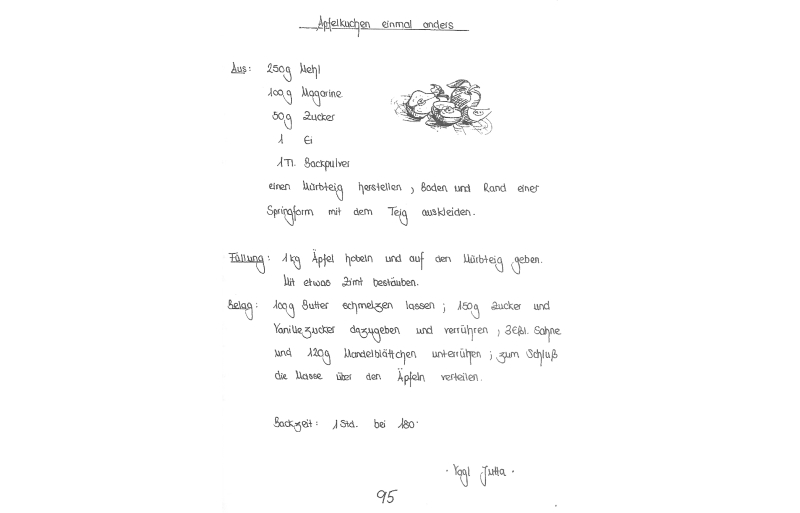 Apfelkuchen einmal anders
Aus: 250g Mehl
100g Magarine
50g Zucker
1 Ei
1 Tl. Backpulver
einen Mürbteig herstellen, Boden und Rand einer
Springform mit dem Teig auskleiden.
Füllung: 1 kg Äpfel hobeln und auf den Mürbteig geben.
Mit etwas Zimt bestäuben.
Belag: 100g Butter schmelzen lassen; 150g Zucker und
Vanillezucker dazugeben und verrühren, 3 Eßl. Sahne
und 120g Mandelblättchen unterrühren; zum Schluß
die Masse über den Äpfeln verteilen.
Backzeit: 1 Std. bei 180°
· Vogl Jutta ·
95